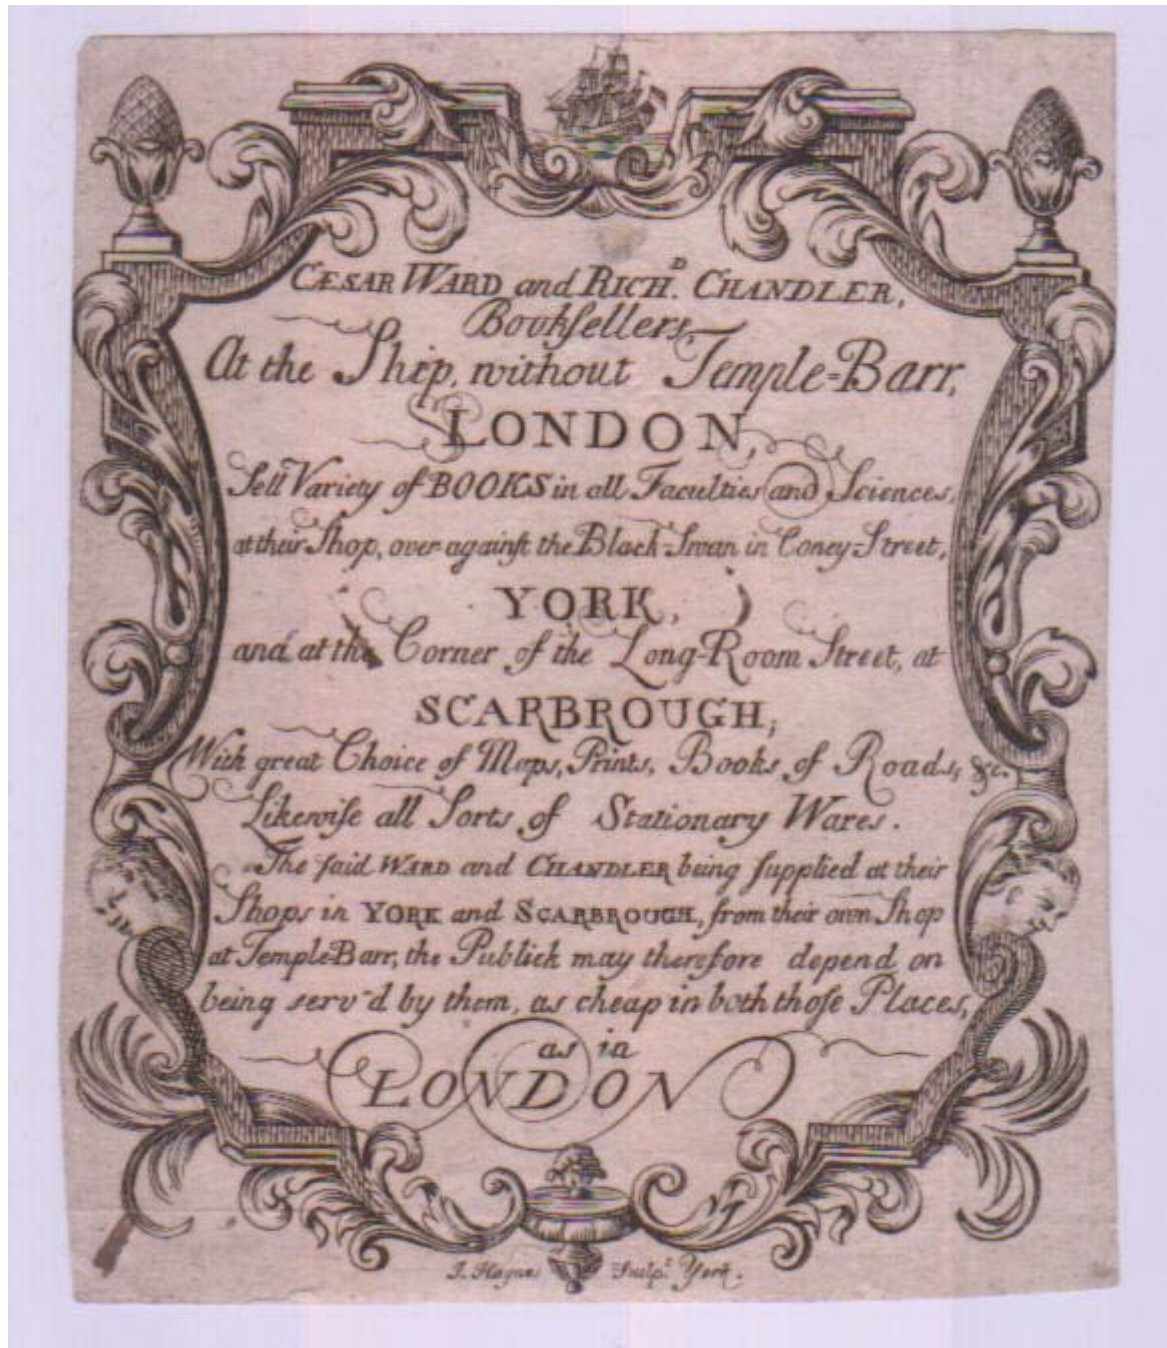 CÆSAR WARD and RICH.D CHANDLER,
Bookſellers,
At the Ship, without Temple=Barr,
LONDON,
Sell Variety of BOOKS in all Faculties and Sciences,
at their Shop, over againſt the Black-Swan in Coney-Street,
YORK,
and at the Corner of the Long-Room Street, at
SCARBROUGH;
With great Choice of Maps, Prints, Books of Roads, &c.
Likewiſe all Sorts of Stationary Wares.
The ſaid WARD and CHANDLER being ſupplied at their
Shops in YORK and SCARBROUGH, from their own Shop
at Temple-Barr, the Publick may therefore depend on
being serv'd by them, as cheap in both thoſe Places,
as in
LONDON
J. Haynes Sculp.t York.